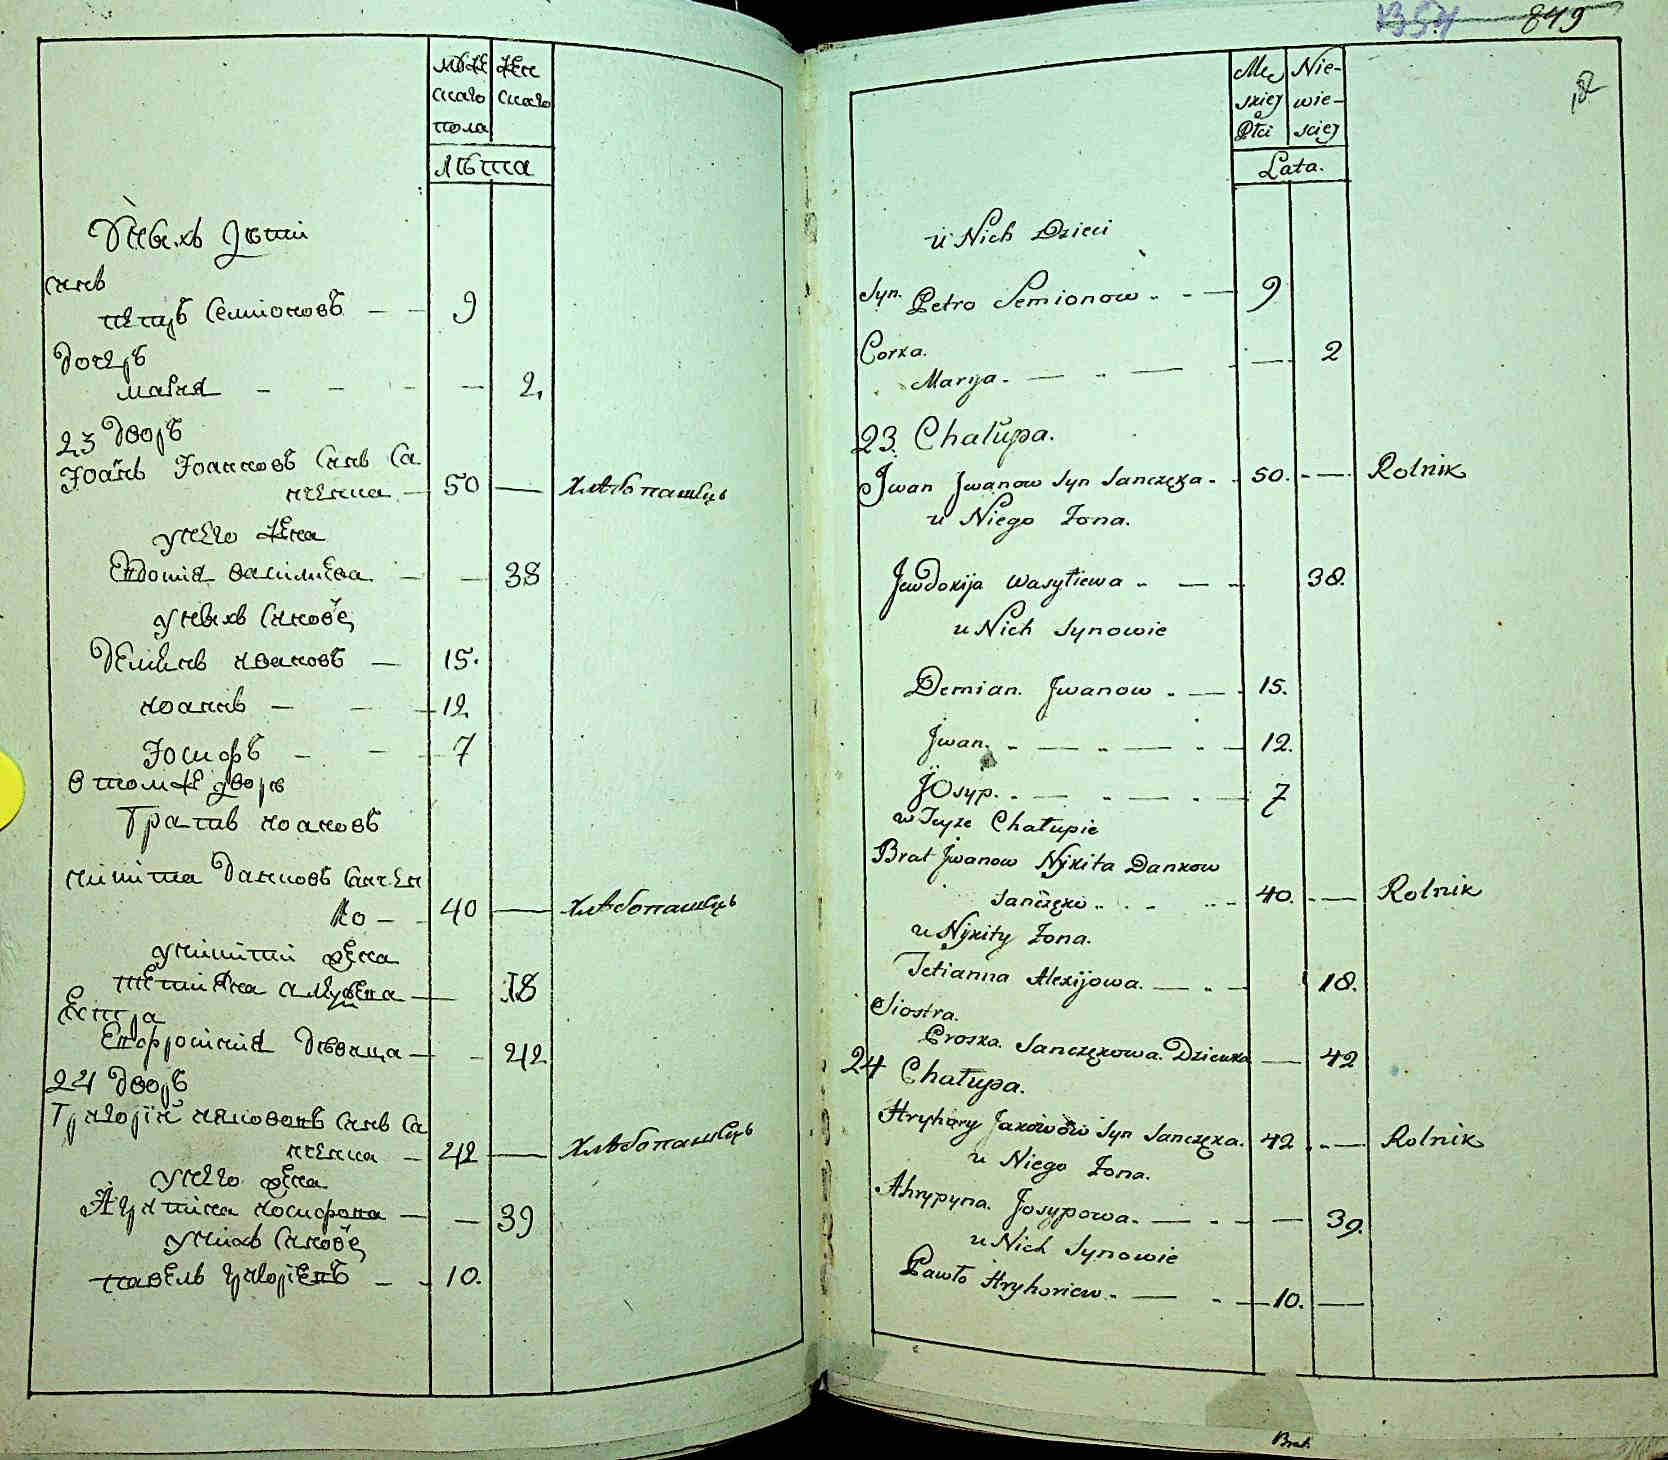 мѹже жен
скаго скаго
пола
лѣта
У нихъ дѣти
синъ
петръ Семіоновъ — — 9
Дочеръ
марія — — — — 2,
23 Дворъ
Іоанъ Іоанновъ Синъ Са
нченка — 50 — хлѣбопашецъ
у него жена
Евдокія василиева — — 38
у нихъ Синовѣ
Деміянъ ивановъ — 15.
иоаннъ — — — 12
Іосифъ — — 7
в томже дворѣ
Братъ иоановъ
никита Данковъ Санчен
ко — — 40 — хлѣбопашецъ
у никити жена
тетіяна — — 18
Сестра
Евфросинія Дѣвица — — 42
24 Дворъ
Григорій якововъ Синъ Са
нченка — 42 — хлѣбопашецъ
у него жена
Агрипина иосифова — — 39
у нихъ Синовѣ
павелъ григоріевъ — — 10.
1354 849
Mę Nie-
skiej wie-
Płci sciej
Lata.
u Nich Dzieci
Syn. Petro Semionow . - — 9
Corka. — 2
Maryja. — . — .
23. Chałupa.
Jwan Jwanow Syn Sanczęka. - 50. - — Rolnik
u Niego Zona.
Jewdokija Wasylewa . — - 38.
u Nich Synowie
Demian. Jwanow . — . 15.
Jwan. - — . — - — 12.
Josyp. . — . — . — 7
w Teyże Chałupie
Brat Jwanow Nykita Dankow
Sanczęko . . - . - 40. - — Rolnik
u Nykity Zona.
Tetianna Alexijowa. — . - 18.
Siostra.
Proska. Sanczękowa. Dziewka — 42
24 Chałupa.
Hryhory Jakowów Syn Sanczęka. 42 . — Rolnik
u Niego Zona.
Ahrypyna. Josypowa. — . - — 39.
u Nich Synowie
Pawło Hryhoriew. — . — 10. —
Brat.